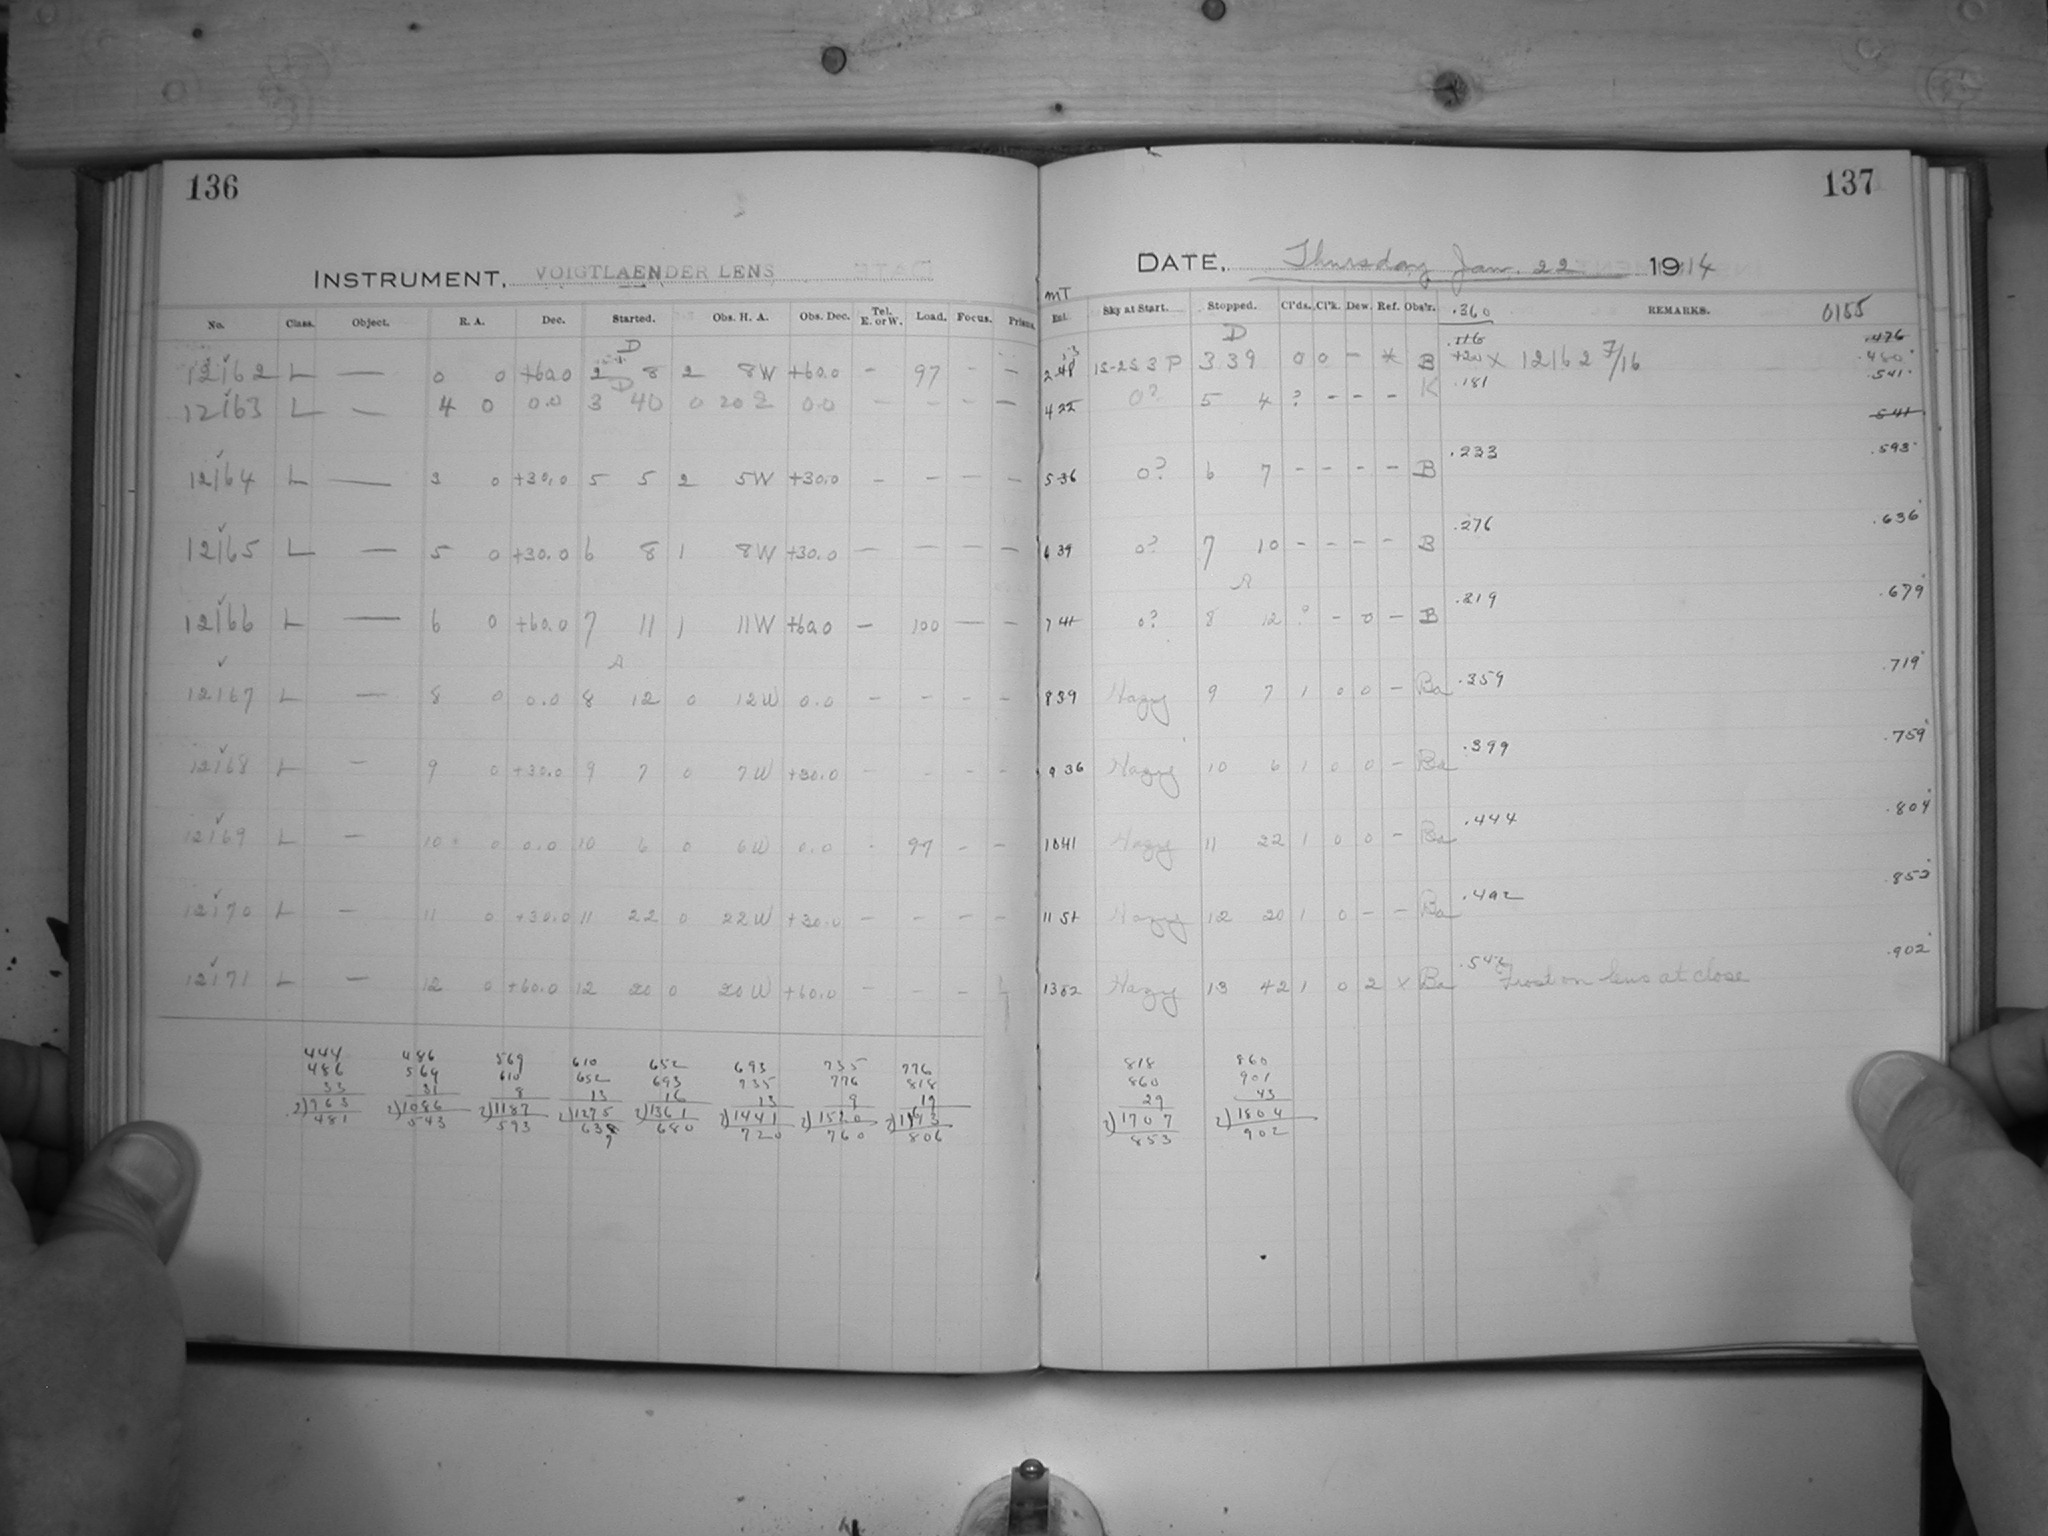 136
INSTRUMENT, VOIGTLAENDER LENS
No. Class. Object. R. A. Dec. Started. Obs. H. A. Obs. Dec. Tel. E. or W. Load. Focus. Prism.
D
12162 L — 0 0 +60.0 2 8 2 8W +60.0 - 97 - -
D
12163 L — 4 0 0.0 3 40 0 20 E 0.0 - - - -
12164 L — 3 0 +30.0 5 5 2 5W +30.0 - - - -
12165 L — 5 0 +30.0 6 8 1 8W +30.0 - - - -
12166 L — 6 0 +60.0 7 11 1 11W +60.0 - 100 - -
A
12167 L — 8 0 0.0 8 12 0 12W 0.0 - - - -
12168 L — 9 0 +30.0 9 7 0 7W +30.0 - - - -
12169 L — 10 0 0.0 10 6 0 6W 0.0 - 97 - -
12170 L — 11 0 +30.0 11 22 0 22W +30.0 - - - -
12171 L — 12 0 +60.0 12 20 0 20W +60.0 - - -
444 486 569 610 652 693 735 776
486 569 610 652 693 735 776 818
33 31 8 13 16 13 9 19
2)963 2)1086 2)1187 2)1275 2)1361 2)1441 2)1520 2)1613
481 543 593 638 680 720 760 806
9
137
DATE, Thursday Jan. 22 1914
MT
Ext. Sky at Start. Stopped. Cl'ds. Cl'k. Dew. Ref. Obs'r. .360 REMARKS. 0155
D
.116 .476
2 48 1S-2S 3 P 3 39 0 0 - * B +20 x 12162 7/16 .480
4 22 0? 5 4 ? - - - K .181 .541
.541
5 36 0? 6 7 - - - - B .233 .593
6 39 0? 7 10 - - - - B .276 .636
A
7 41 0? 8 12 ? - 0 - B .319 .679
8 39 Hazy 9 7 1 0 0 - Ba .359 .719
9 36 Hazy 10 6 1 0 0 - Ba .399 .759
10 41 Hazy 11 22 1 0 0 - Ba .444 .804
11 51 Hazy 12 20 1 0 - - Ba .492 .852
13 02 Hazy 13 42 1 0 2 x Ba .542 Frost on lens at close .902
818 860
860 901
29 43
2)1707 2)1804
853 902